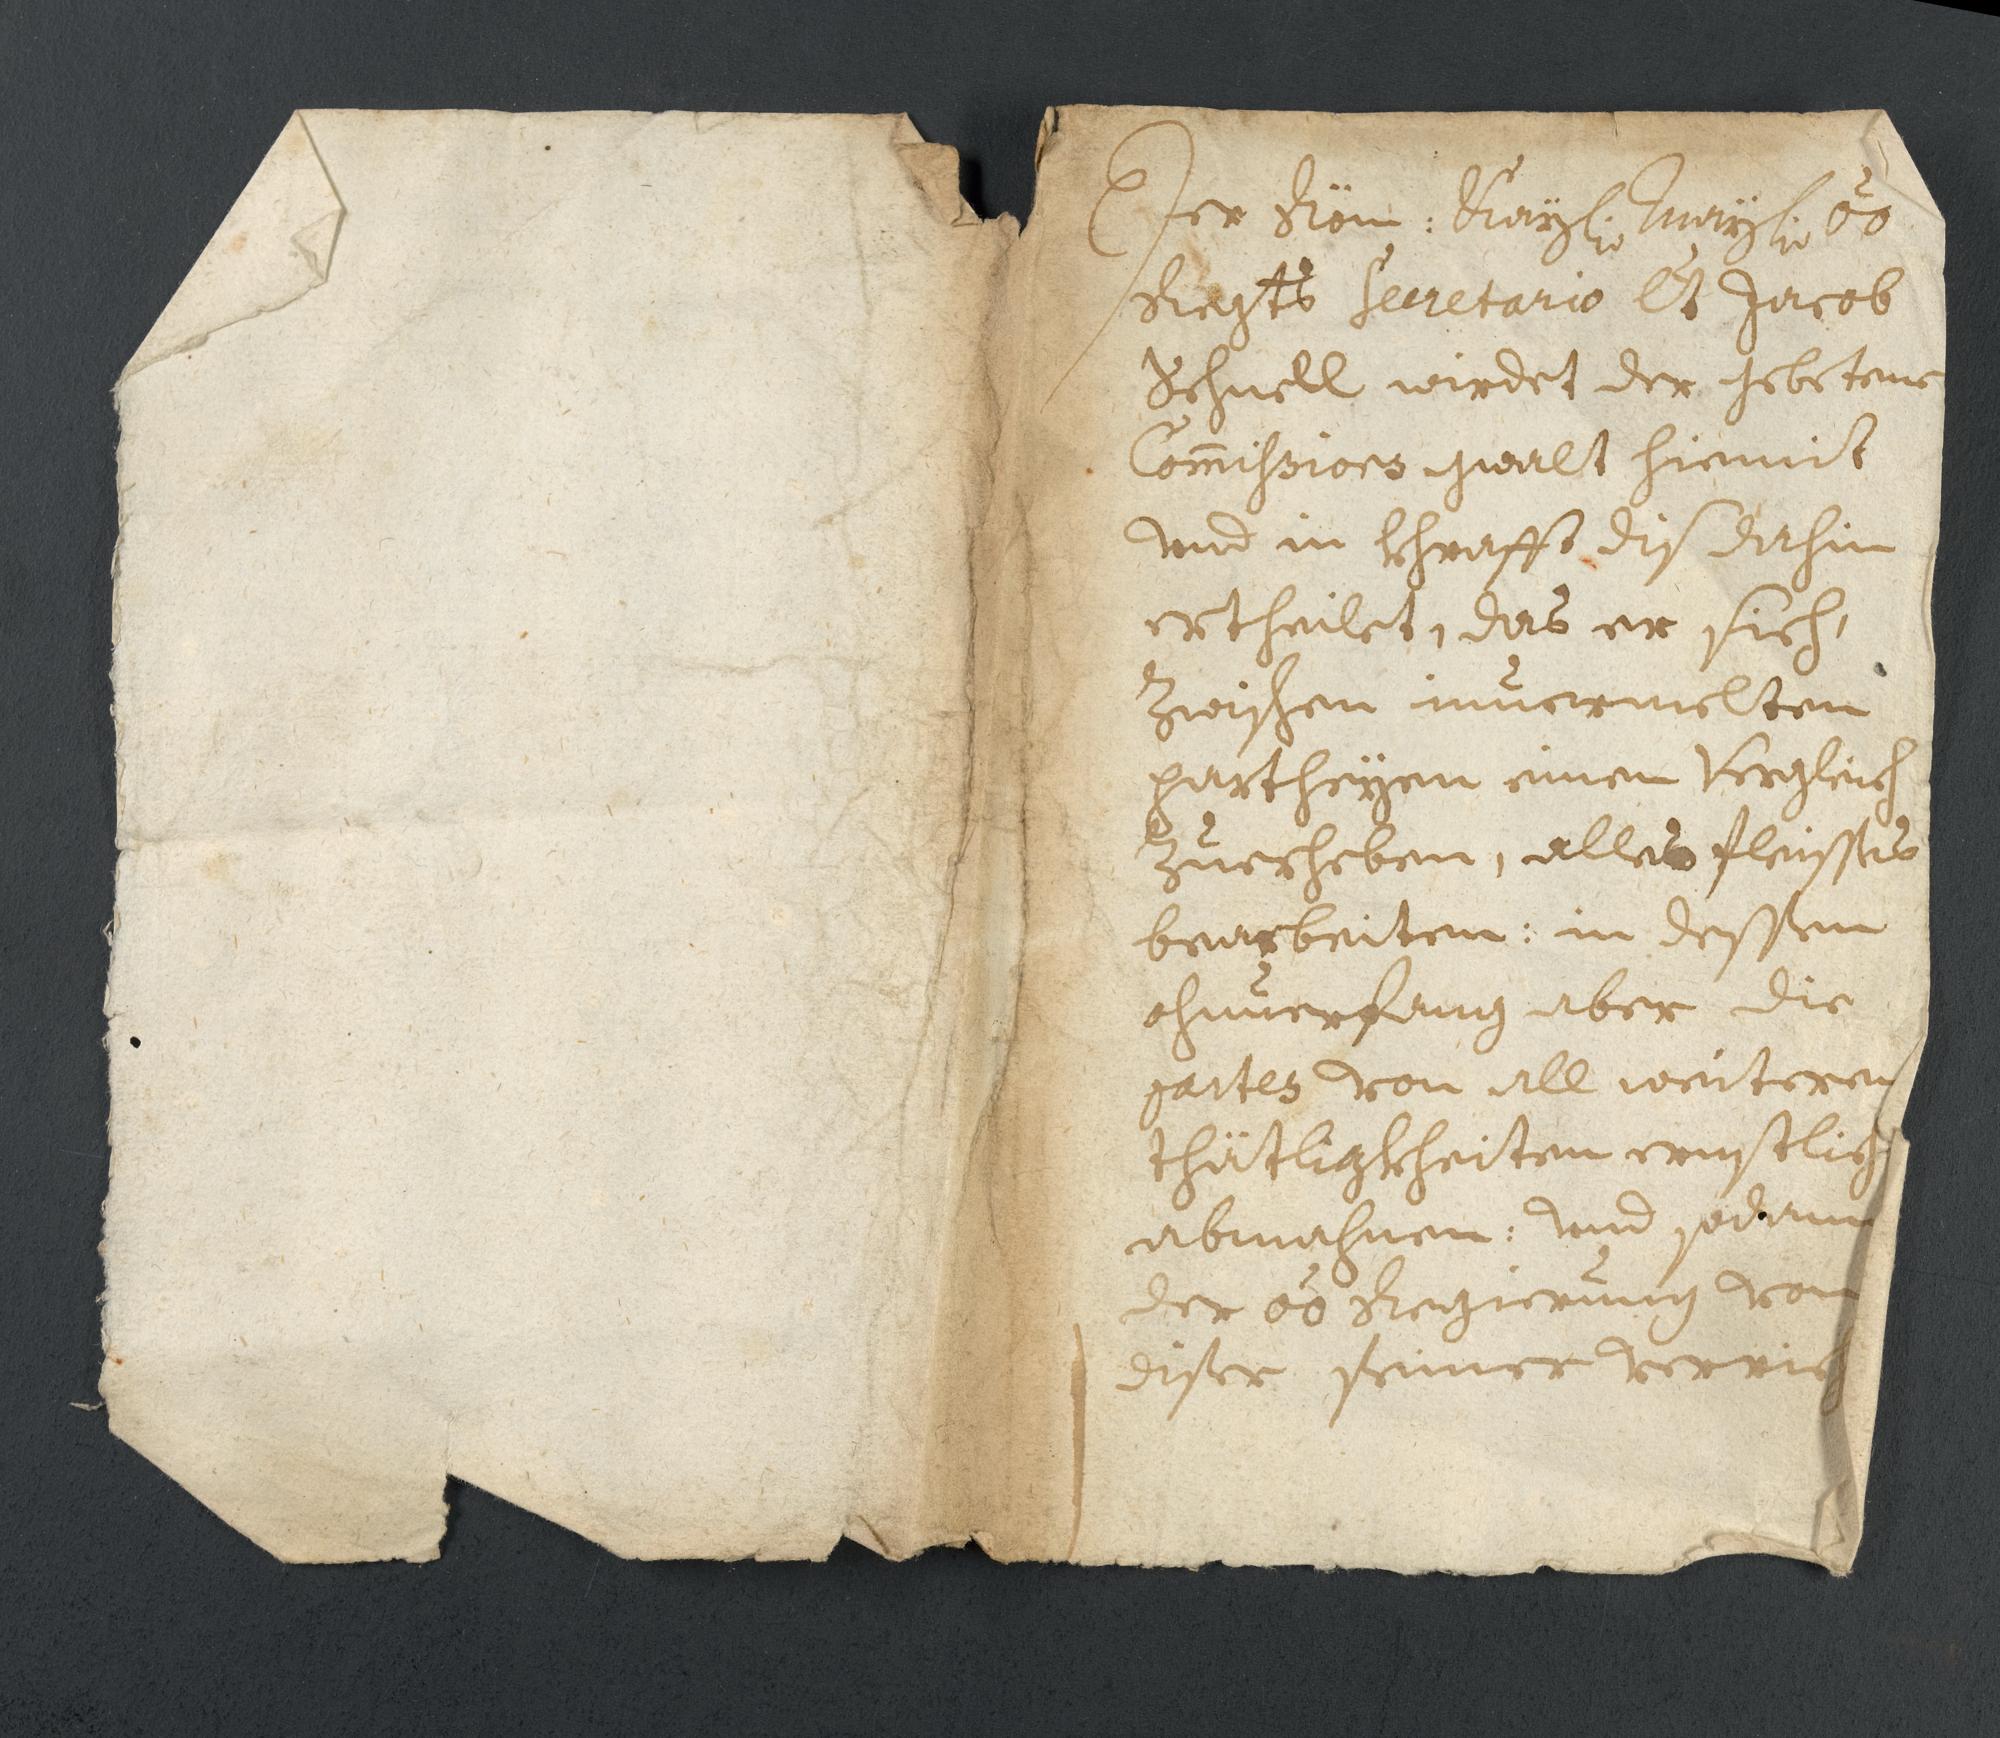 Der Röm: Kayßl: Mayßl: OÖ
Regts Secretario Lt Jacob
Schnell wirdet der gebetene
Com̅ißions gwalt hiemit
vnd in khrafft diß dahin
ertheilet, das er sich,
Zwischen inuermelten
partheyen einen Vergleich
Zuerheben, alles fleisses
bearbeiten: in dessen
ohnuerfang aber die
partes von all weiteren
thätligkheiten ernstlich
abmahnen: vnd sodann
der OÖ Regierung von
diser seiner verrich